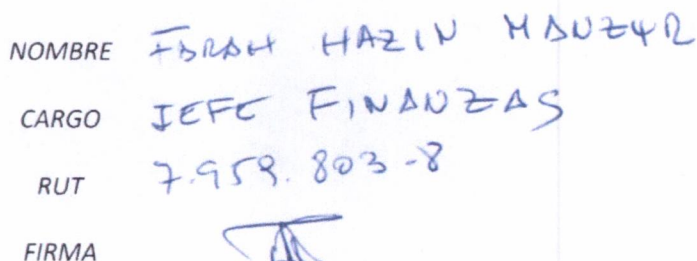 NOMBRE FARAH HAZIN MANZUR
CARGO JEFE FINANZAS
RUT 7.959.803-8
FIRMA